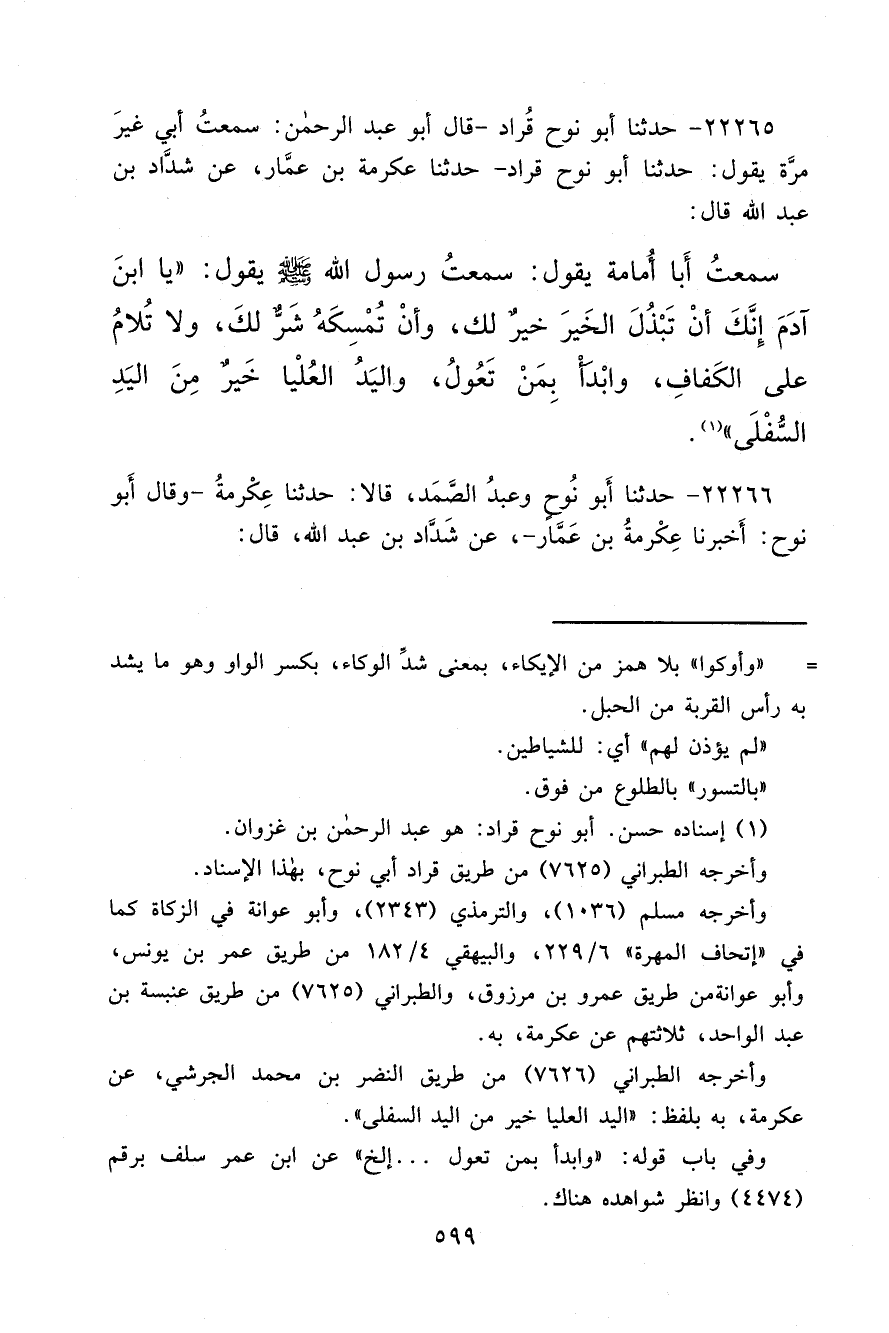 ٢٢٢٦٥- حدثنا أبو نوح قُراد -قال أبو عبد الرحمٰن: سمعتُ أبي غيرَ
مرَّة يقول: حدثنا أبو نوح قراد- حدثنا عكرمة بن عمَّار، عن شدَّاد بن
عبد الله قال:
سمعتُ أَبا أُمامة يقول: سمعتُ رسول الله ﷺ يقول: «يا ابنَ
آدَمَ إِنَّكَ أنْ تَبْذُلَ الخَيرَ خيرٌ لك، وأنْ تُمْسِكَهُ شَرٌّ لكَ، ولا تُلامُ
على الكَفافِ، وابْدَأْ بِمَنْ تَعُولُ، واليَدُ العُلْيا خَيرٌ مِنَ اليَدِ
السُّفْلَى»(١).
٢٢٢٦٦- حدثنا أَبو نُوحٍ وعبدُ الصَّمَد، قالا: حدثنا عِكْرمةُ -وقال أَبو
نوح: أَخبرنا عِكْرمةُ بن عَمَّار-، عن شَدَّاد بن عبد الله، قال:
= «وأوكوا» بلا همز من الإيكاء، بمعنى شدِّ الوكاء، بكسر الواو وهو ما يشد
به رأس القربة من الحبل.
«لم يؤذن لهم» أي: للشياطين.
«بالتسور» بالطلوع من فوق.
(١) إسناده حسن. أبو نوح قراد: هو عبد الرحمٰن بن غزوان.
وأخرجه الطبراني (٧٦٢٥) من طريق قراد أبي نوح، بهٰذا الإسناد.
وأخرجه مسلم (١٠٣٦)، والترمذي (٢٣٤٣)، وأبو عوانة في الزكاة كما
في «إتحاف المهرة» ٢٢٩/٦، والبيهقي ١٨٢/٤ من طريق عمر بن يونس،
وأبو عوانةمن طريق عمرو بن مرزوق، والطبراني (٧٦٢٥) من طريق عنبسة بن
عبد الواحد، ثلاثتهم عن عكرمة، به.
وأخرجه الطبراني (٧٦٢٦) من طريق النضر بن محمد الجرشي، عن
عكرمة، به بلفظ: «اليد العليا خير من اليد السفلى».
وفي باب قوله: «وابدأ بمن تعول ...إلخ» عن ابن عمر سلف برقم
(٤٤٧٤) وانظر شواهده هناك.
٥٩٩